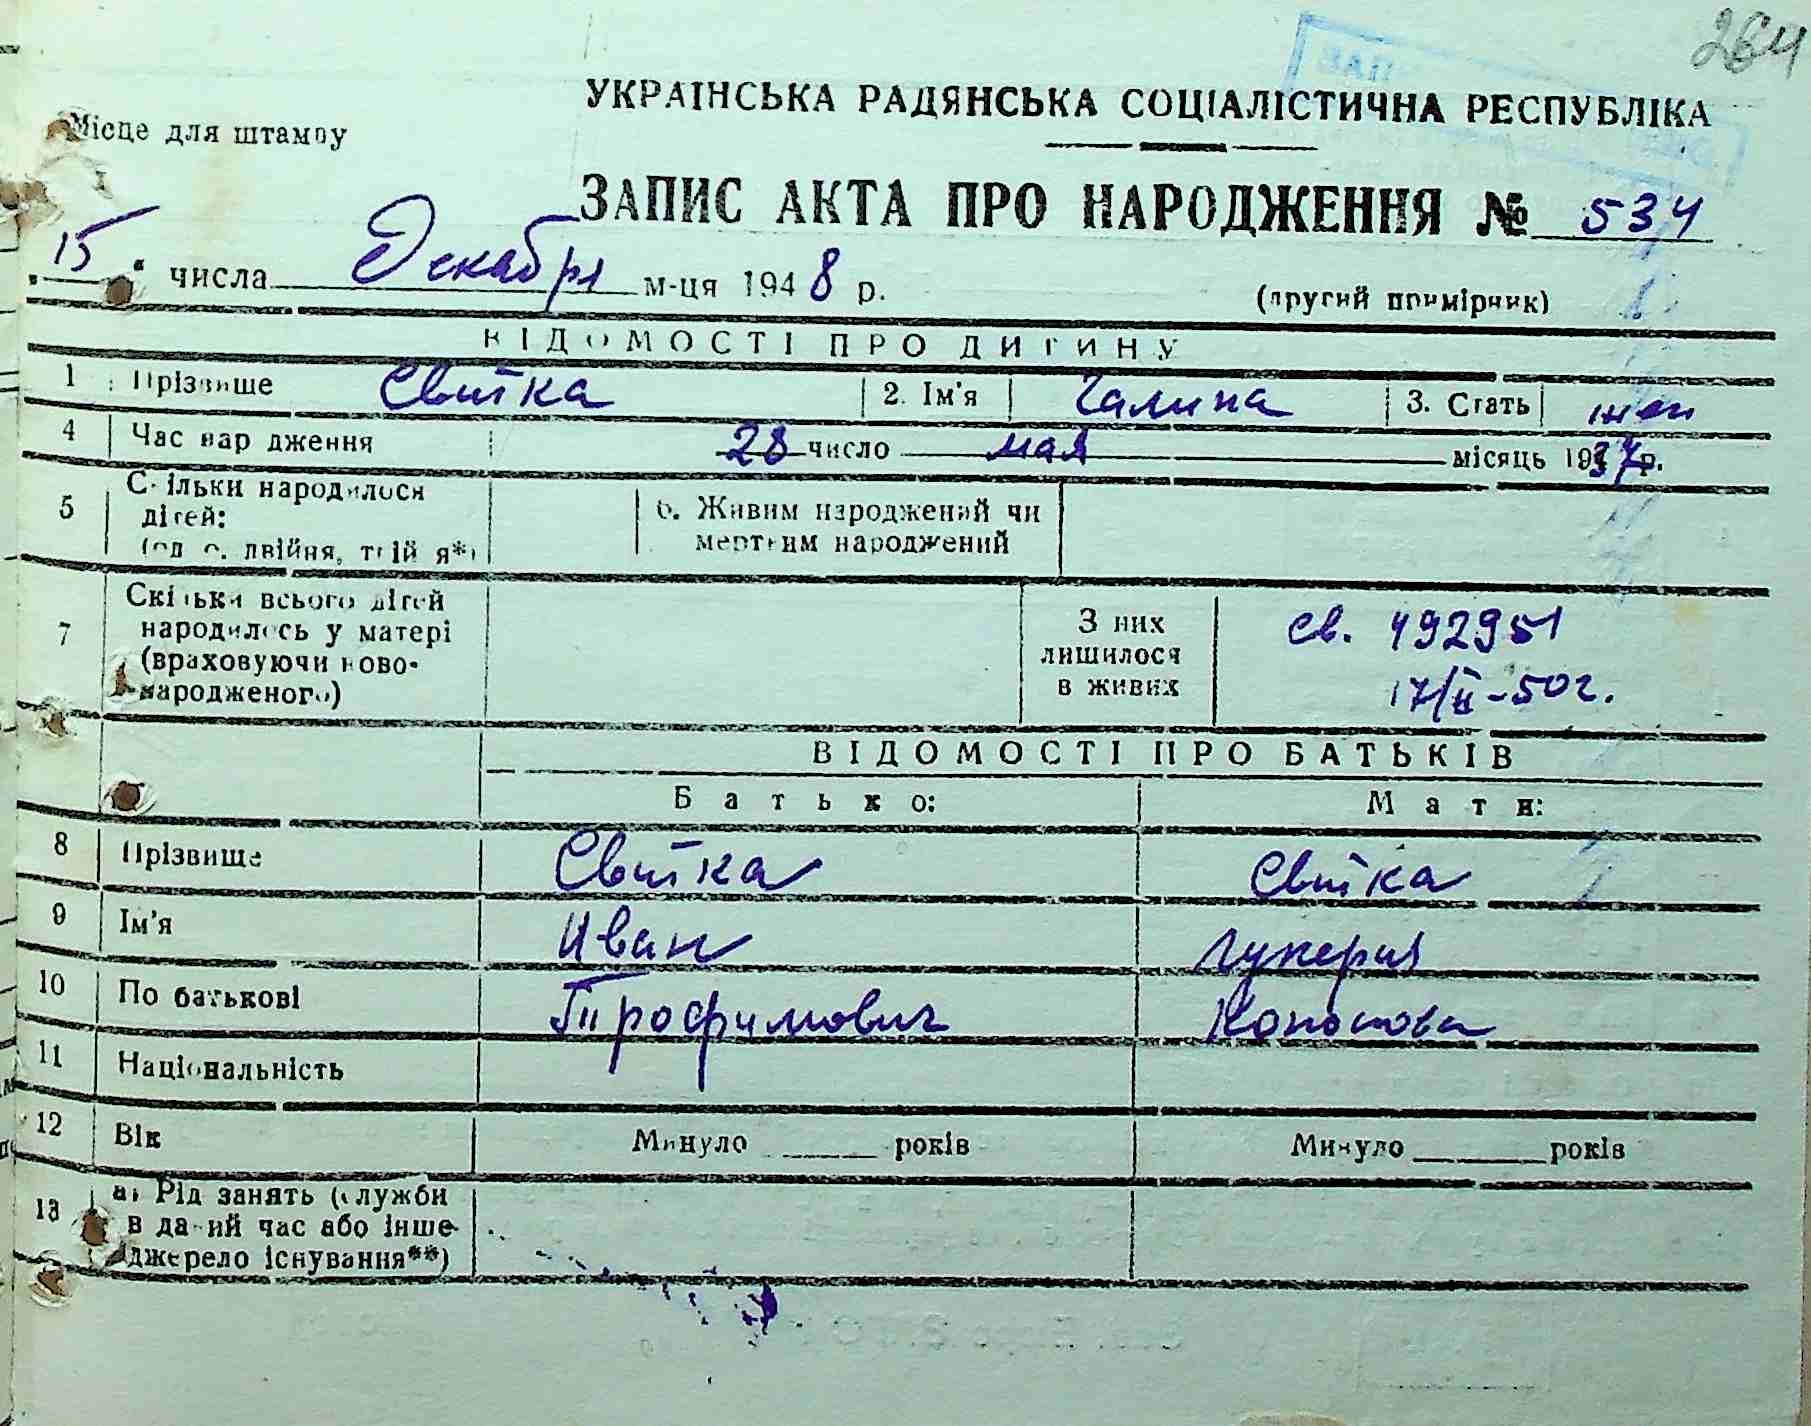 264
УКРАЇНСЬКА РАДЯНСЬКА СОЦІАЛІСТИЧНА РЕСПУБЛІКА
Місце для штампу
ЗАПИС АКТА ПРО НАРОДЖЕННЯ № 534
"15" числа Декабря м-ця 1948 р.
(другий примірник)
ВІДОМОСТІ ПРО ДИТИНУ
1 Прізвище Свитка 2. Ім'я Галина 3. Стать жен
4 Час народження 28 число мая місяць 1937 р.
5 Скільки народилося дітей: (од о, двійня, трійня*)
6. Живим народжений чи мертвим народжений
7 Скільки всього дітей народилось у матері (враховуючи ново-народженого)
З них лишилося в живих
св. 492951
17/II-50 г.
ВІДОМОСТІ ПРО БАТЬКІВ
Батько: Мати:
8 Прізвище Свитка Свитка
9 Ім'я Иван Лукерия
10 По батькові Трофимович Кононовна
11 Національність
12 Вік Минуло років Минуло років
13 а) Рід занять (служби в даний час або інше джерело існування**)